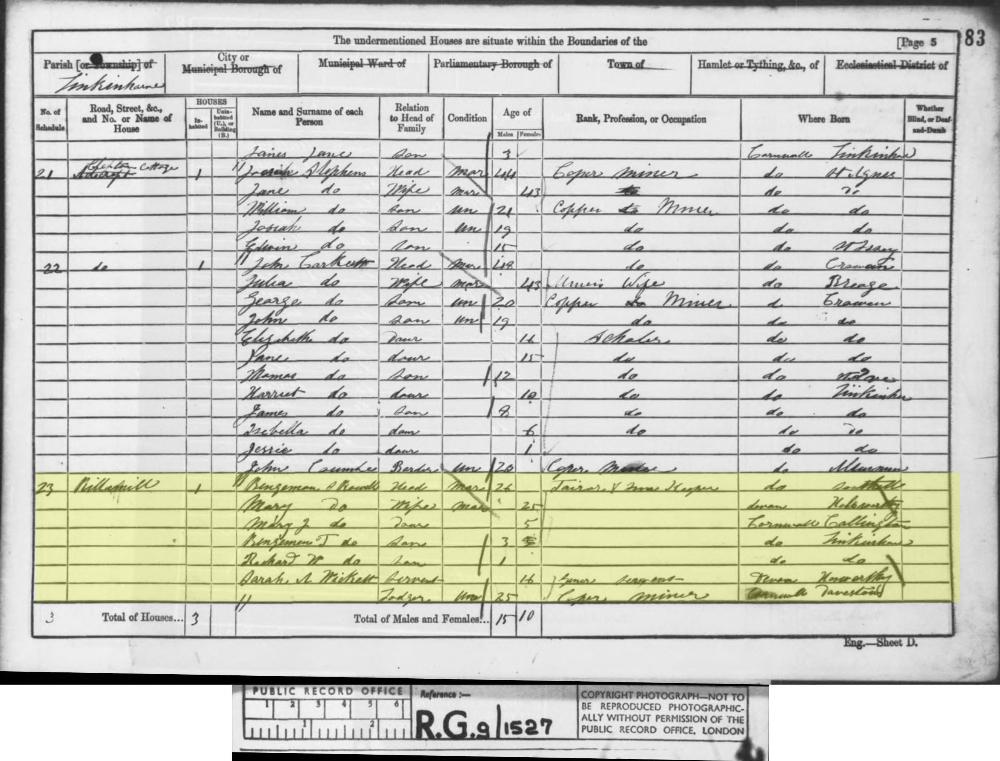 The undermentioned Houses are situate within the Boundaries of the
[Page 5
83
Parish [or Township] of
City or Municipal Borough of
Municipal Ward of
Parliamentary Borough of
Town of
Hamlet or Tything, &c., of
Ecclesiastical District of
Linkinhorne
No. of Schedule
Road, Street, &c., and No. or Name of House
HOUSES
In-habited
Unin-habited (U.), or Building (B.)
Name and Surname of each Person
Relation to Head of Family
Condition
Age of
Males
Females
Rank, Profession, or Occupation
Where Born
Whether Blind, or Deaf-and-Dumb
James Lane son 3 Cornwall Linkinhorne
21 Cottage 1 Josiah Stephens Head Mar 44 Coper Miner do St Agnes
Jane do Wife Mar 43 do do do
William do son un 21 Copper do Miner do do
Josiah do son un 19 do do do
Edwin do son 15 do do St Issey
22 do 1 John Head Mar 48 do do Crowan
Julia do Wife Mar 43 Wife do Breage
George do Son un 20 Copper do Miner do Crowan
John do son un 19 do do do
Elizabeth do Daur 16 Scholar do do
Jane do daur 15 do do do
Thomas do son 12 do do
Harriet do daur 10 do do Linkinhorne
James do son 8 do do do
Isebella do daur 6 do do do
Jessie do daur 1 do do
John Border un 20 Coper Miner do
23 Rillamill 1 Bengeman Head Mar 26 do
Mary Do Wife Mar 25 Devon Holsworthy
Mary J do Daur 5 Cornwall Callington
Bengemen T do son 3 do Linkinhorne
Richard W do son 1 do do
Sarah A Wickett Servent 16 Devon
" Lodger Un 25 Coper Miner Cornwall Davestock
3 Total of Houses... 3
Total of Males and Females... 15 10
Eng.—Sheet D.
PUBLIC RECORD OFFICE
1 2 3 4 5 6
1 2
Reference:—
R.G.9/1527
COPYRIGHT PHOTOGRAPH—NOT TO
BE REPRODUCED PHOTOGRAPHIC-
ALLY WITHOUT PERMISSION OF THE
PUBLIC RECORD OFFICE, LONDON